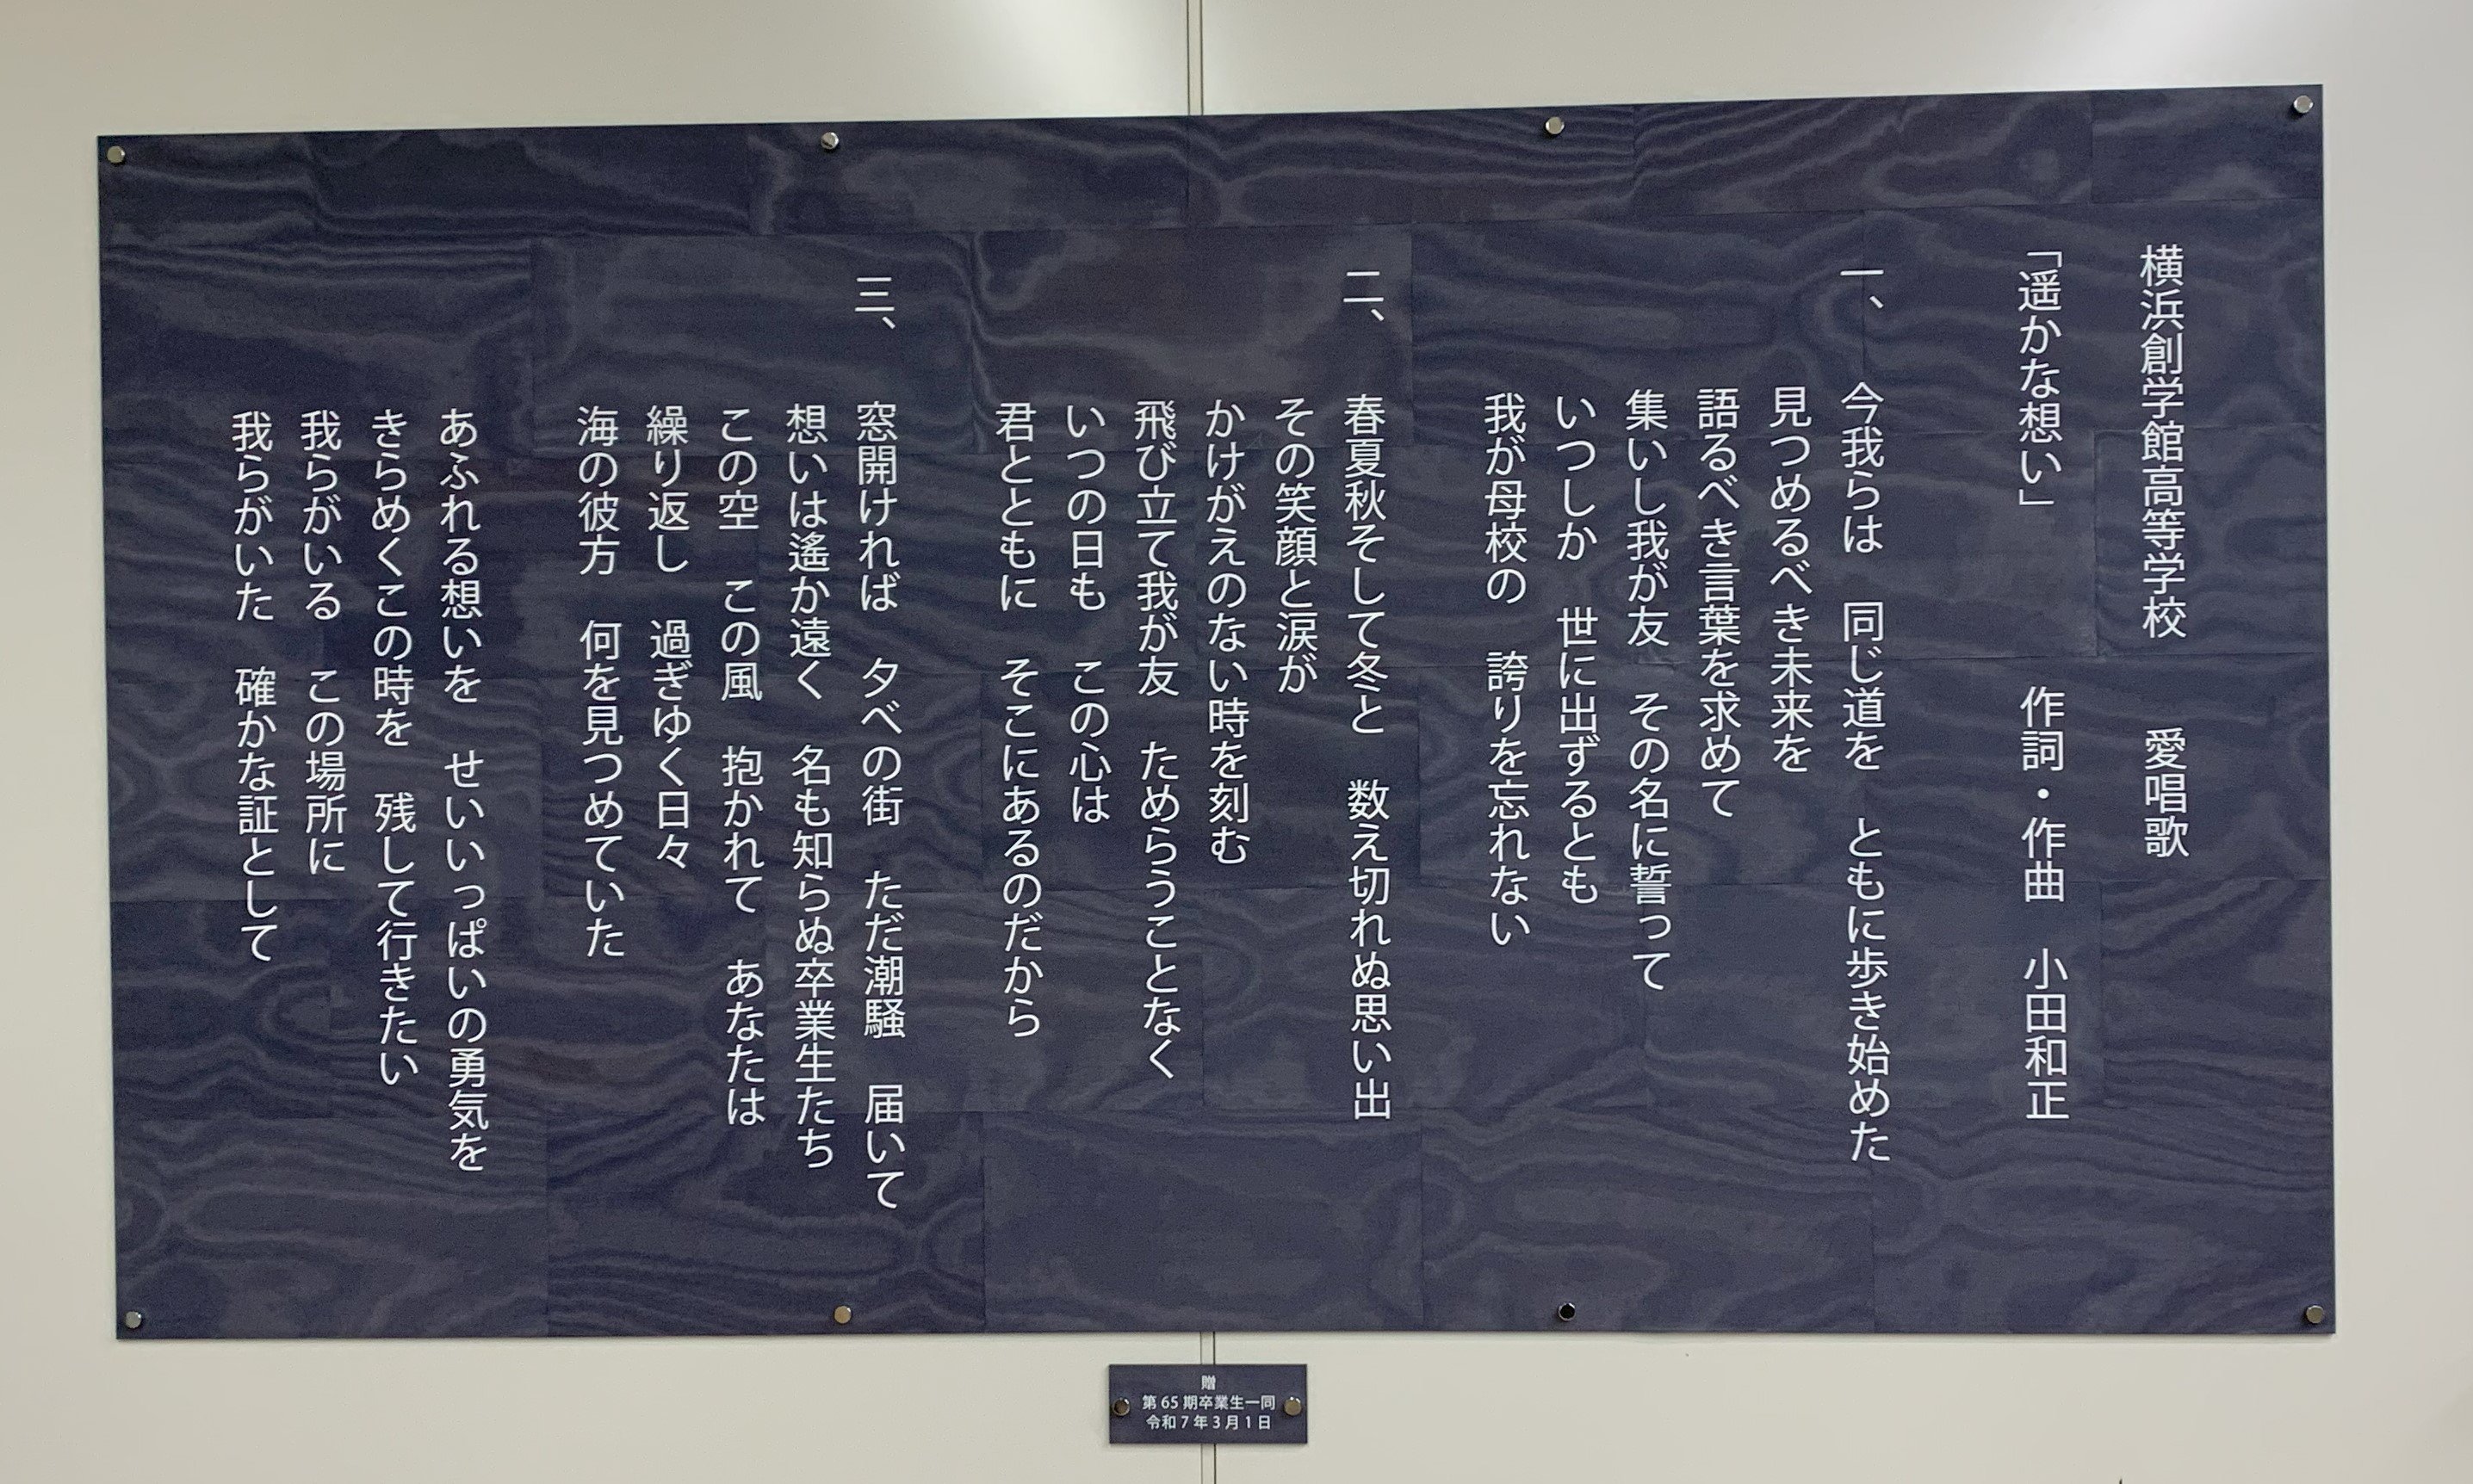 横浜創学館高等学校　　愛唱歌
「遥かな想い」　　　　作詞・作曲　小田和正
一、
今我らは　同じ道を　ともに歩き始めた
見つめるべき未来を
語るべき言葉を求めて
集いし我が友　その名に誓って
いつしか　世に出ずるとも
我が母校の　誇りを忘れない
二、
春夏秋そして冬と　数え切れぬ思い出
その笑顔と涙が
かけがえのない時を刻む
飛び立て我が友　ためらうことなく
いつの日も　この心は
君とともに　そこにあるのだから
三、
窓開ければ　夕べの街　ただ潮騒　届いて
想いは遙か遠く　名も知らぬ卒業生たち
この空　この風　抱かれて　あなたは
繰り返し　過ぎゆく日々
海の彼方　何を見つめていた
あふれる想いを　せいいっぱいの勇気を
きらめくこの時を　残して行きたい
我らがいる　この場所に
我らがいた　確かな証として
贈
第65期卒業生一同
令和7年3月1日